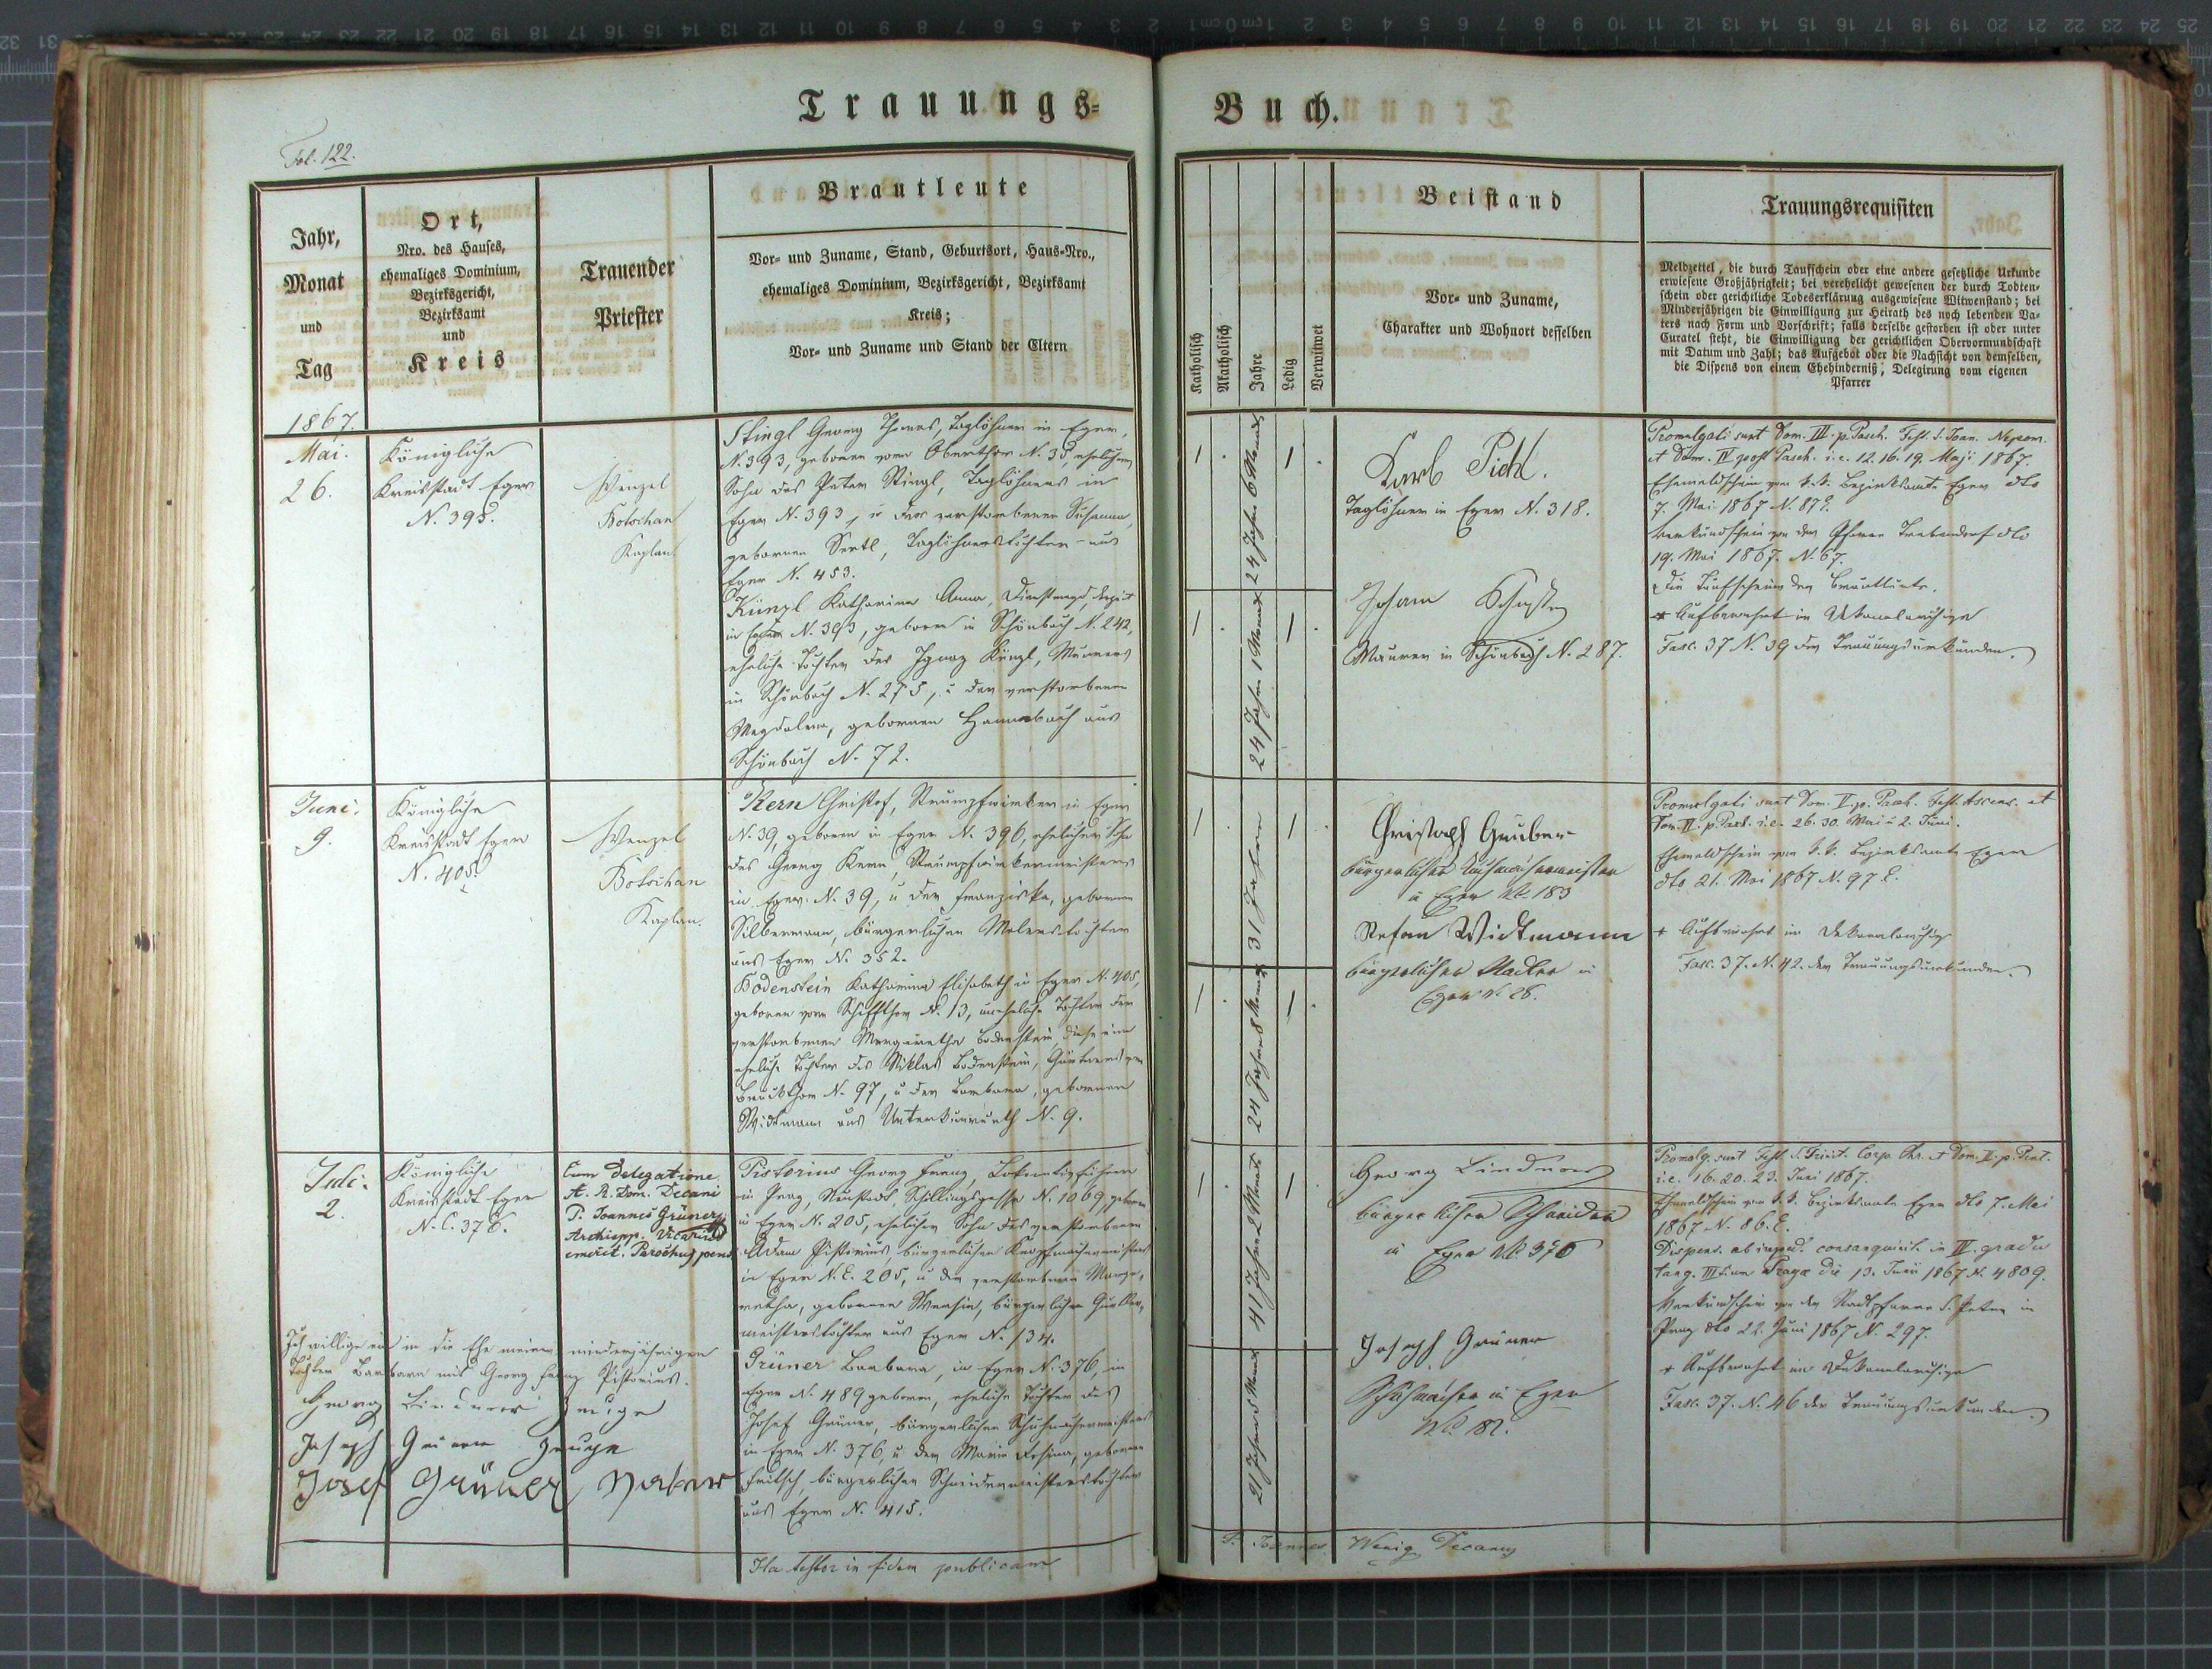 Trauungs=
Buch.
Fol. 122.
Jahr,
Monat
und
Tag
Ort,
Nro. des Hauses,
ehemaliges Dominium,
Bezirksgericht,
Bezirksamt
und
Kreis
Trauender
Priester
Brautleute
Vor= und Zuname, Stand, Geburtsort, Haus=Nro.,
ehemaliges Dominium, Bezirksgericht, Bezirksamt
Kreis;
Vor= und Zuname und Stand der Eltern
Katholisch
Akatholisch
Jahre
Ledig
Verwitwet
Beistand
Vor= und Zuname,
Charakter und Wohnort desselben
Trauungsrequisiten
Meldzettel, die durch Taufschein oder eine andere gesetzliche Urkunde
erwiesene Großjährigkeit; bei verehelicht gewesenen der durch Todten=
schein oder gerichtliche Todeserklärung ausgewiesene Witwenstand; bei
Minderjährigen die Einwilligung zur Heirath des noch lebenden Va=
ters nach Form und Vorschrift; falls derselbe gestorben ist oder unter
Curatel steht, die Einwilligung der gerichtlichen Obervormundschaft
mit Datum und Zahl; das Aufgebot oder die Nachsicht von demselben,
die Dispens von einem Ehehinderniß, Delegirung vom eigenen
Pfarrer
1867.
Mai.
26.
Königliche
Kreisstadt Eger
N. 393.
Wenzel
Botschan
Kaplan.
Stingl Georg Thomas, Taglöhner in Eger,
N. 393, geboren vorm Oberthor N. 35, ehelicher
Sohn des Peter Stingl, Taglöhners in
Eger N. 393, u der verstorbenen Susanna,
gebornen Sertl, Taglöhnerstochter aus
Eger N. 453.
Künzl Katharina Anna, Dienstmagd, derzeit
in Eger N. 393, geboren in Schönbach N. 242,
eheliche Tochter des Ignaz Künzl, Maurers
in Schönbach N. 275, u der verstorbenen
Magdalena, gebornen Hannabach aus
Schönbach N. 72.
1. 24 Jahre 6 Monate 1.
1. 24 Jahre 1 Monat 1.
Karl Pichl.
Taglöhner in Eger N. 318.
Johann
Maurer in Schönbach N. 287.
Promulgati sunt Dom. III. p. Pasch. Fest. S. Joan. Nepom.
et Dom. IV post Pasch. i.e. 12. 16. 19. Maji 1867.
Ehemeldschein vom k.k. Bezirksamte Eger dto
7. Mai 1867 N. 87 E.
Verkündschein von der Pfarre Trebendorf dto
19. Mai 1867. N. 67.
Die Taufscheine der Brautleute.
* Aufbewahrt im Dekanalarchive
Fasc. 37 N. 39 der Trauungsurkunden.
Juni.
9.
Königliche
Kreisstadt Eger
N. 405.
Wenzel
Botschan
Kaplan.
Kern Christof, Strumpfwirker in Eger
N. 39, geboren in Eger N. 396, ehelicher Sohn
des Georg Kern, Strumpfwirkermeisters
in Eger N. 39, u der Franziska, gebornen
Silbermann, bürgerlichen Malerstochter
aus Eger N. 352.
Bodenstein Katharina Elisabeth in Eger N. 405,
geboren vorm Schiffthor N. 13, uneheliche Tochter der
verstorbenen Margaretha Bodenstein, diese eine
eheliche Tochter des Niklas Bodenstein, Gärtners vorm
Bruckthor N. 97, u der Barbara, gebornen
Widtmann aus Unterkunreuth N. 9.
1. 31 Jahre 1.
1. 24 Jahre 8 Monate 1.
Christoph Gruber
bürgerlicher Tuchmachermeister
in Eger N. 183
Stefan Widtmann
bürgerlicher in
Eger N. 26.
Promulgati sunt Dom. V. p. Pasch. Fest. Ascens. et
Dom. VI. p. Pasch. i.e. 26. 30. Mai u 2. Juni.
Ehemeldschein vom k.k. Bezirksamte Eger
dto. 21. Mai 1867 N. 97 E.
* Aufbewahrt im Dekanalarchive
Fasc. 37. N. 42. der Trauungsurkunden.
Juli.
2.
Königliche
Kreisstadt Eger
N. C. 376.
Cum Delegatione
A. R. Dom. Decani
P. Joannes Grüner
Archiepp. Vicarius
emerit. Parochus pens
Pistorius Georg Franz, Lokomotivführer
in Prag, Neustadt, Schillingsgasse N. 1069, geboren
in Eger N. 205, ehelicher Sohn des verstorbenen
Adam Pistorius, bürgerlichen Knopfmachermeisters
in Eger N. C. 205, u der verstorbenen Marga=
retha, gebornen Wersin, bürgerlichen Gürtler=
meisterstochter aus Eger N. 134.
Grüner Barbara, in Eger N. 376, in
Eger N. 489 geboren, eheliche Tochter des
Josef Grüner, bürgerlichen Schuhmachermeisters
in Eger N. 376, u der Maria Rosina, gebornen
Fritsch, bürgerlichen Schneidermeisterstochter
aus Eger N. 415.
Ich willige ein in die Ehe meiner minderjährigen
Tochter Barbara mit Georg Franz Pistorius.
Georg Lindner Zeuge
Joseph Grüner Zeuge
Josef Grüner Vater
1. 41 Jahre 2 Monate 1.
21 Jahre 5 Monate
Georg Lindner
bürgerlicher Schneider
in Eger N. 376
Joseph Grüner
Schuhmacher in Eger
Promulg. sunt Fest. S. Trinit. Corp. Chr. et Dom. II. p. Pent.
i.e. 16. 20. 23. Juni 1867.
Ehemeldschein vom k.k. Bezirksamte Eger dto 7. Mai
1867 N. 86. E.
Dispens. ab imped. consanguinit. in IV. gradu
tang. III Pragæ die 13. Junii 1867 N. 4809.
Verkündschein von der Stadtpfarre S. Peter in
Prag dto 22. Juni 1867 N. 297.
* Aufbewahrt im Dekanalarchive
Fasc. 37. N. 46 der Trauungsurkunden.
Ita testor in fidem publicam
P. Joannes Wenig Decanus